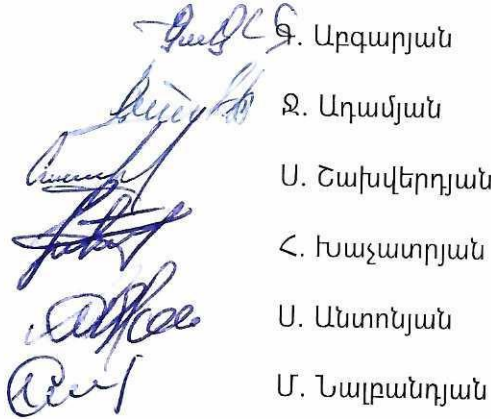 Գ. Աբգարյան
Ջ. Ադամյան
Ս. Շախվերդյան
Հ. Խաչատրյան
Ս. Անտոնյան
Մ. Նալբանդյան